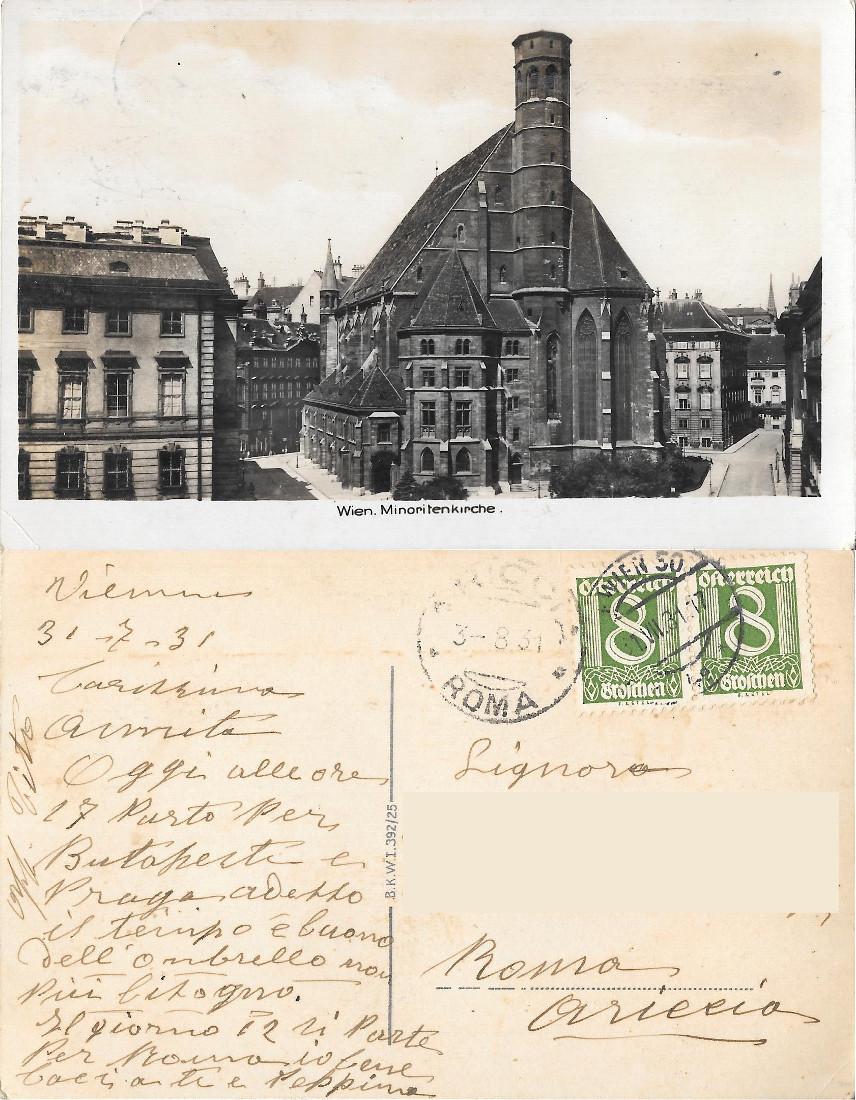 Wien. Minoritenkirche.
Vienna
31-7-31
Carissima
Annita
Oggi alle ore
17 Parto Per
Butapest e
Praga adesso
il tempo è buono
dell'ombrello non
Più bisogno.
Il giorno 12 si Parte
Per Roma io bene
baci a te e Peppino
B.K.W.I. 392/25
ROMA
3-8.31
WIEN 50
Österreich
8
Groschen
Österreich
8
Groschen
Signora
Roma
Ariccia